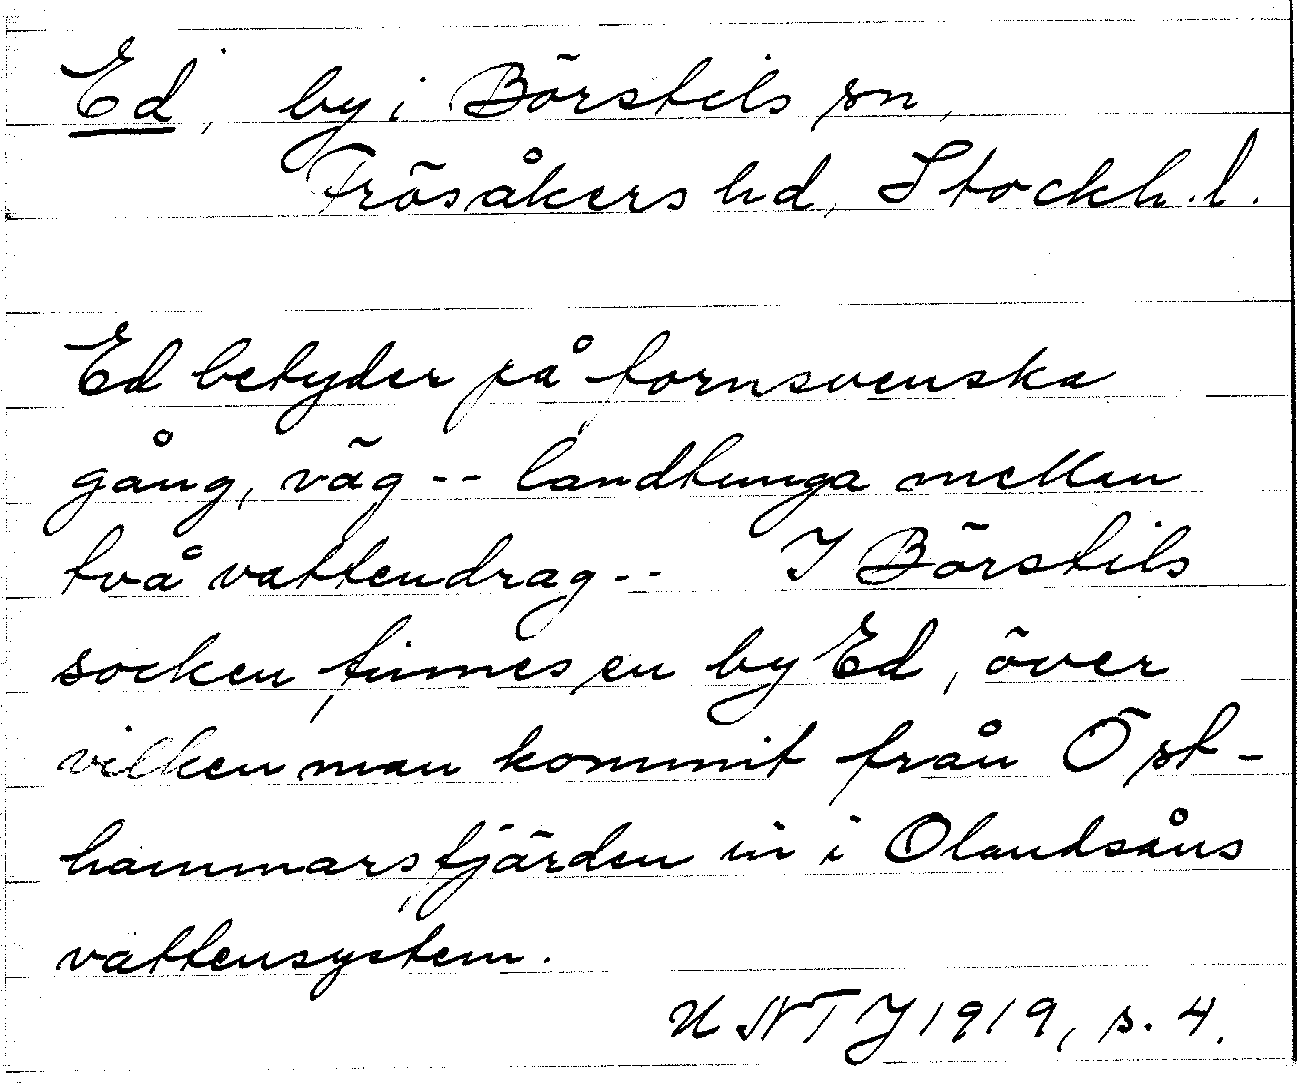 Ed, by i Börstils sn,
Frösåkers hd, Stockh. l.
Ed betyder på fornsvenska
gång, väg -- landtunga mellan
två vattendrag -- I Börstils
socken finnes en by Ed, över
vilken man kommit från Öst-
hammarsfjärden in i Olandsåns
vattensystem.
UNTJ 1919, s. 4.